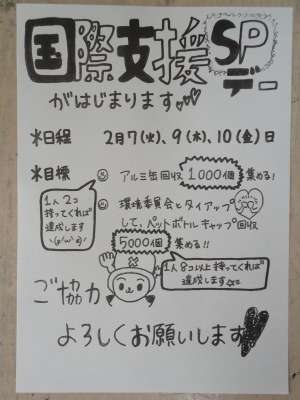 国際支援SP
デー
がはじまります
※日程 2月7(火)、9(木)、10(金)日
※目標 アルミ缶回収 1000個 集める!
1人2コ
持ってくれば
達成します
環境委員会とタイアップ
して、ペットボトルキャップ回収
5000個 集める!!
1人8コ以上持ってくれば
達成します
ご協力
よろしくお願いします